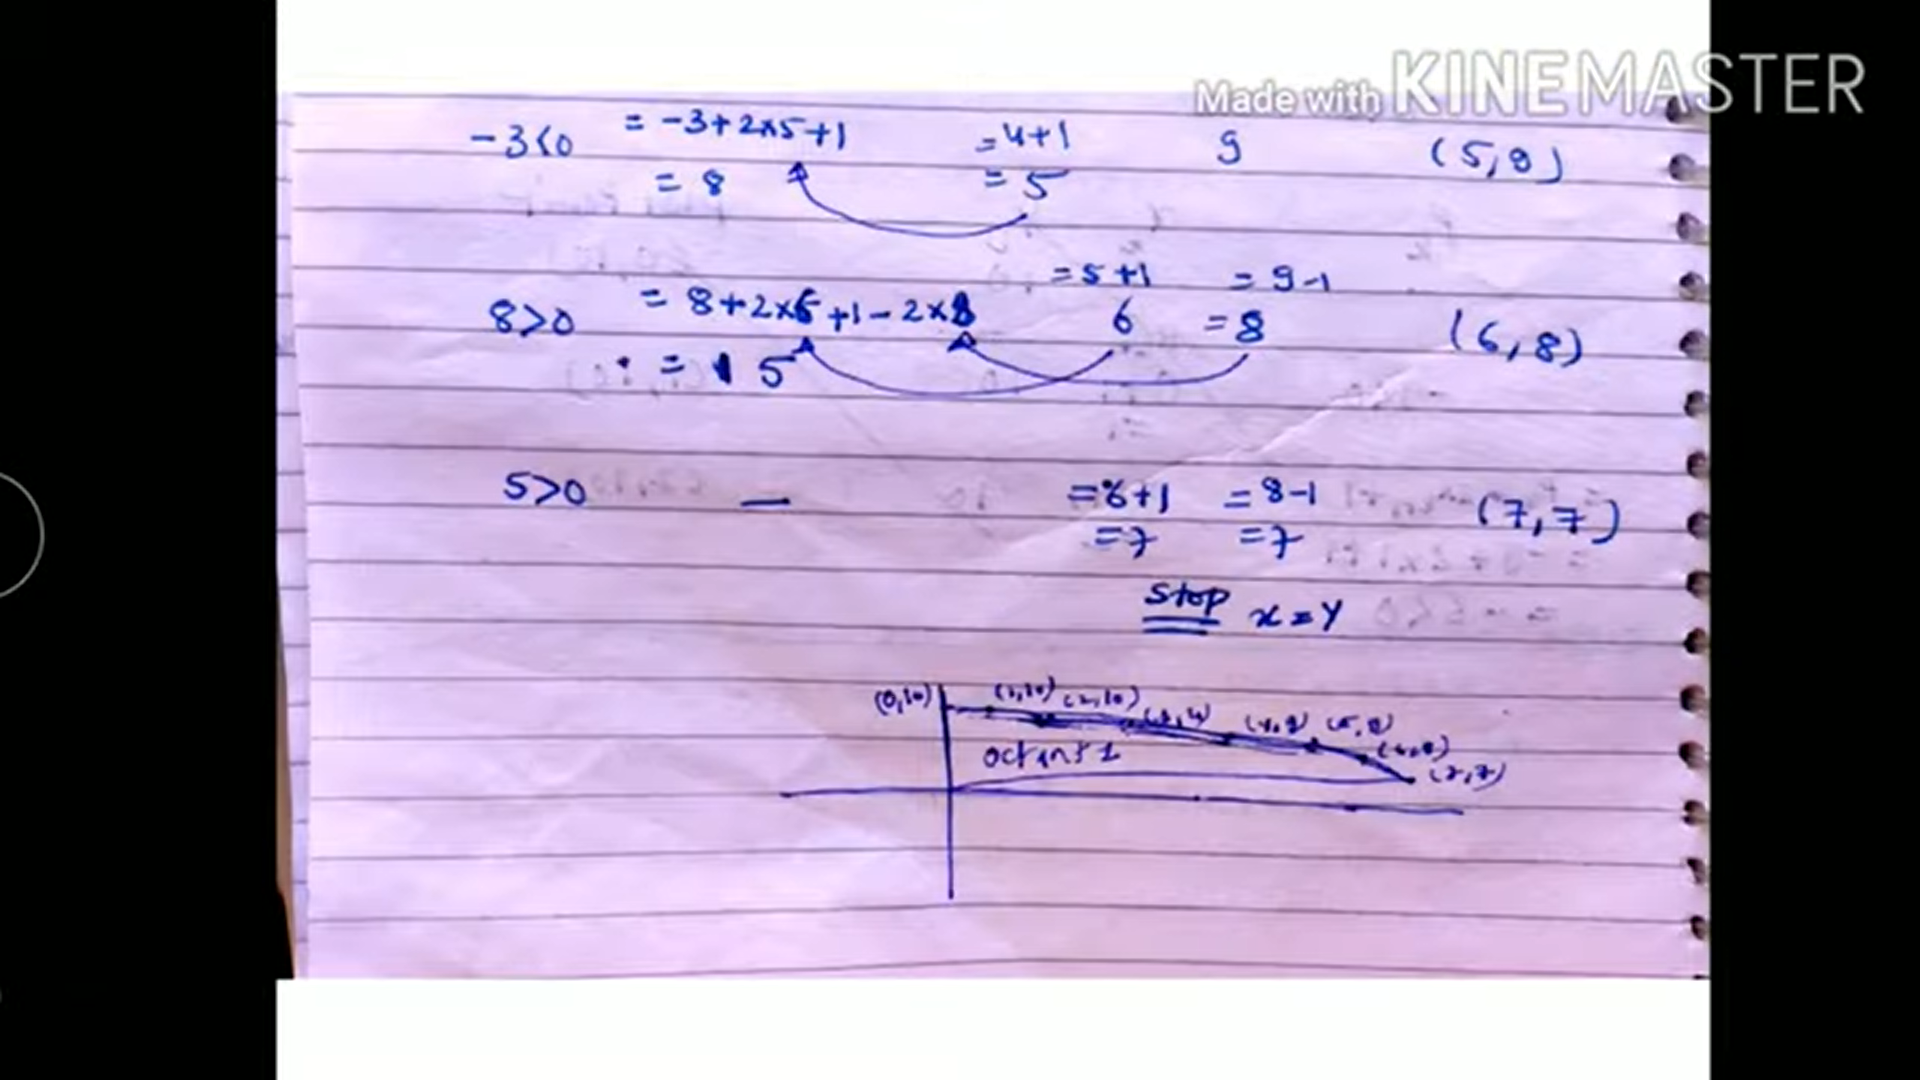 Made with KINEMASTER
-3<0 = -3+2×5+1 =4+1 9 (5,9)
= 8 = 5
= 5+1 = 9-1
8>0 = 8+2×6+1-2×8 6 = 8 (6,8)
= 5
5>0 — =6+1 = 8-1 (7,7)
=7 =7
Stop x=y
(0,10) (1,10) (2,10) (5,9) (6,8)
octant 1 (7,7)